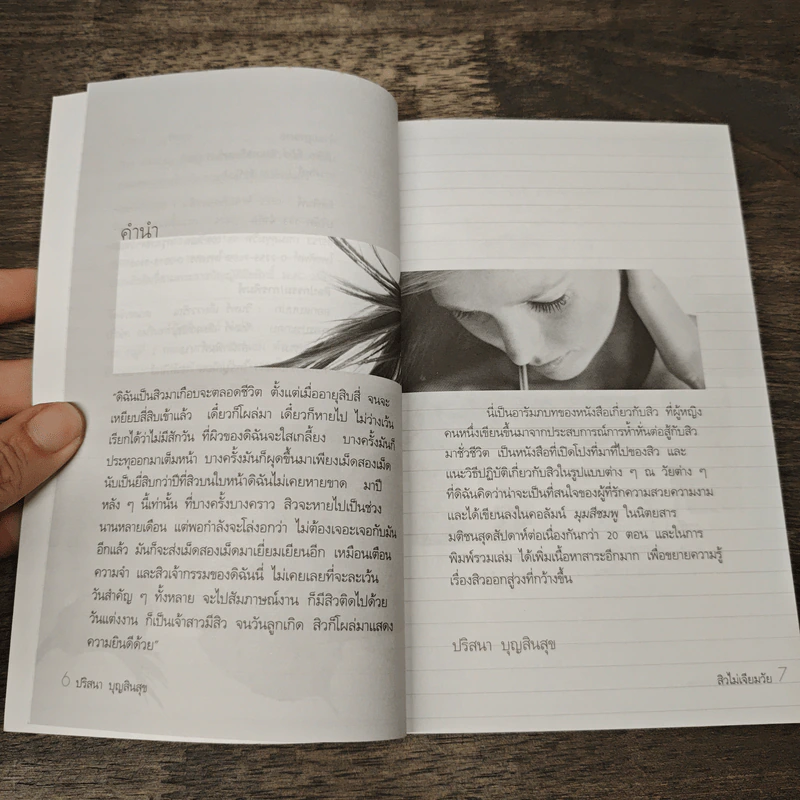 คำนำ
"ดิฉันเป็นสิวมาเกือบจะตลอดชีวิต ตั้งแต่เมื่ออายุสิบสี่ จนจะ
เหยียบสี่สิบเข้าแล้ว เดี๋ยวก็โผล่มา เดี๋ยวก็หายไป ไม่ว่างเว้น
เรียกได้ว่าไม่มีสักวัน ที่ผิวของดิฉันจะใสเกลี้ยง บางครั้งมันก็
ประทุออกมาเต็มหน้า บางครั้งมันก็ผุดขึ้นมาเพียงเม็ดสองเม็ด
นับเป็นยี่สิบกว่าปีที่สิวบนใบหน้าดิฉันไม่เคยหายขาด มาปี
หลัง ๆ นี้เท่านั้น ที่บางครั้งบางคราว สิวจะหายไปเป็นช่วง
นานหลายเดือน แต่พอกำลังจะโล่งอกว่า ไม่ต้องเจอะเจอกับมัน
อีกแล้ว มันก็จะส่งเม็ดสองเม็ดมาเยี่ยมเยียนอีก เหมือนเตือน
ความจำ และสิวเจ้ากรรมของดิฉันนี่ ไม่เคยเลยที่จะละเว้น
วันสำคัญ ๆ ทั้งหลาย จะไปสัมภาษณ์งาน ก็มีสิวติดไปด้วย
วันแต่งงาน ก็เป็นเจ้าสาวมีสิว จนวันลูกเกิด สิวก็โผล่มาแสดง
ความยินดีด้วย"
6 ปริสนา บุญสินสุข
นี่เป็นอารัมภบทของหนังสือเกี่ยวกับสิว ที่ผู้หญิง
คนหนึ่งเขียนขึ้นมาจากประสบการณ์การห้ำหั่นต่อสู้กับสิว
มาชั่วชีวิต เป็นหนังสือที่เปิดโปงที่มาที่ไปของสิว และ
แนะวิธีปฏิบัติเกี่ยวกับสิวในรูปแบบต่าง ๆ ณ วัยต่าง ๆ
ที่ดิฉันคิดว่าน่าจะเป็นที่สนใจของผู้ที่รักความสวยความงาม
และได้เขียนลงในคอลัมน์ มุมสีชมพู ในนิตยสาร
มติชนสุดสัปดาห์ต่อเนื่องกันกว่า 20 ตอน และในการ
พิมพ์รวมเล่ม ได้เพิ่มเนื้อหาสาระอีกมาก เพื่อขยายความรู้
เรื่องสิวออกสู่วงที่กว้างขึ้น
ปริสนา บุญสินสุข
สิวไม่เจียมวัย 7